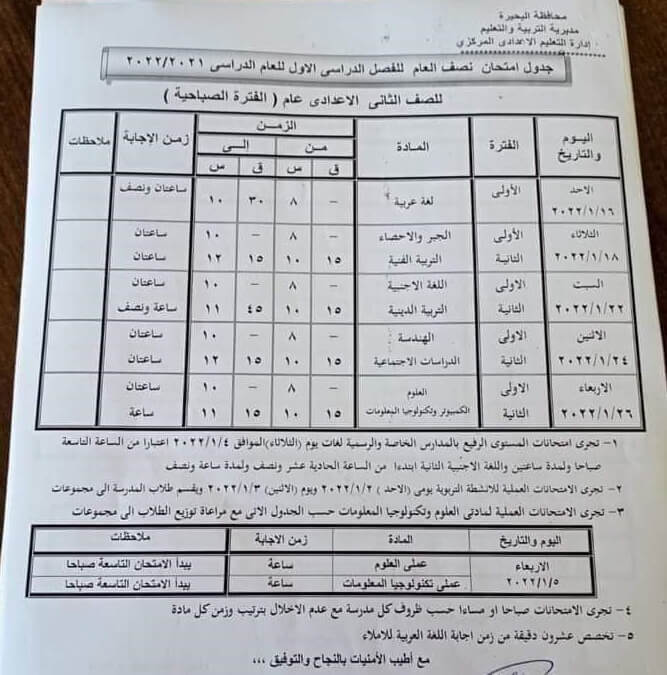 محافظة البحيرة
مديرية التربية والتعليم
إدارة التعليم الاعدادى المركزي
جدول امتحان نصف العام للفصل الدراسى الاول للعام الدراسى ٢٠٢٢/٢٠٢١
للصف الثانى الاعدادى عام ( الفترة الصباحية )
اليوم والتاريخ الفترة المادة الزمـن زمن الإجابة ملاحظات
من إلى
ق س ق س
الاحد ٢٠٢٢/١/١٦ الأولى لغة عربية – ٨ ٣٠ ١٠ ساعتان ونصف
الثلاثاء الأولى الجبر والاحصاء – ٨ – ١٠ ساعتان
٢٠٢٢/١/١٨ الثانية التربية الفنية ١٥ ١٠ ١٥ ١٢ ساعتان
السبت الاولى اللغة الاجنبية – ٨ – ١٠ ساعتان
٢٠٢٢/١/٢٢ الثانية التربية الدينية ١٥ ١٠ ٤٥ ١١ ساعة ونصف
الاثنين الاولى الهندسة – ٨ – ١٠ ساعتان
٢٠٢٢/١/٢٤ الثانية الدراسات الاجتماعية ١٥ ١٠ ١٥ ١٢ ساعتان
الاربعاء الاولى العلوم – ٨ – ١٠ ساعتان
٢٠٢٢/١/٢٦ الثانية الكمبيوتر وتكنولوجيا المعلومات ١٥ ١٠ ١٥ ١١ ساعة
١- تجرى امتحانات المستوى الرفيع بالمدارس الخاصة والرسمية لغات يوم (الثلاثاء)الموافق ٢٠٢٢/١/٤ اعتبارا من الساعة التاسعة
صباحا ولمدة ساعتين واللغة الاجنبية الثانية ابتدءا من الساعة الحادية عشر ونصف ولمدة ساعة ونصف
٢- تجرى الامتحانات العملية للانشطة التربوية يومى (الاحد ) ٢٠٢٢/١/٢ ويوم (الاثنين) ٢٠٢٢/١/٣ ويقسم طلاب المدرسة الى مجموعات
٣- تجرى الامتحانات العملية لمادتى العلوم وتكنولوجيا المعلومات حسب الجدول الاتى مع مراعاة توزيع الطلاب الى مجموعات
اليوم والتاريخ المادة زمن الاجابة ملاحظات
الاربعاء عملى العلوم ساعة يبدأ الامتحان التاسعة صباحا
٢٠٢٢/١/٥ عملى تكنولوجيا المعلومات ساعة يبدأ الامتحان التاسعة صباحا
٤- تجرى الامتحانات صباحا او مساءا حسب ظروف كل مدرسة مع عدم الاخلال بترتيب وزمن كل مادة
٥- تخصص عشرون دقيقة من زمن اجابة اللغة العربية للاملاء
مع أطيب الأمنيات بالنجاح والتوفيق ،،،